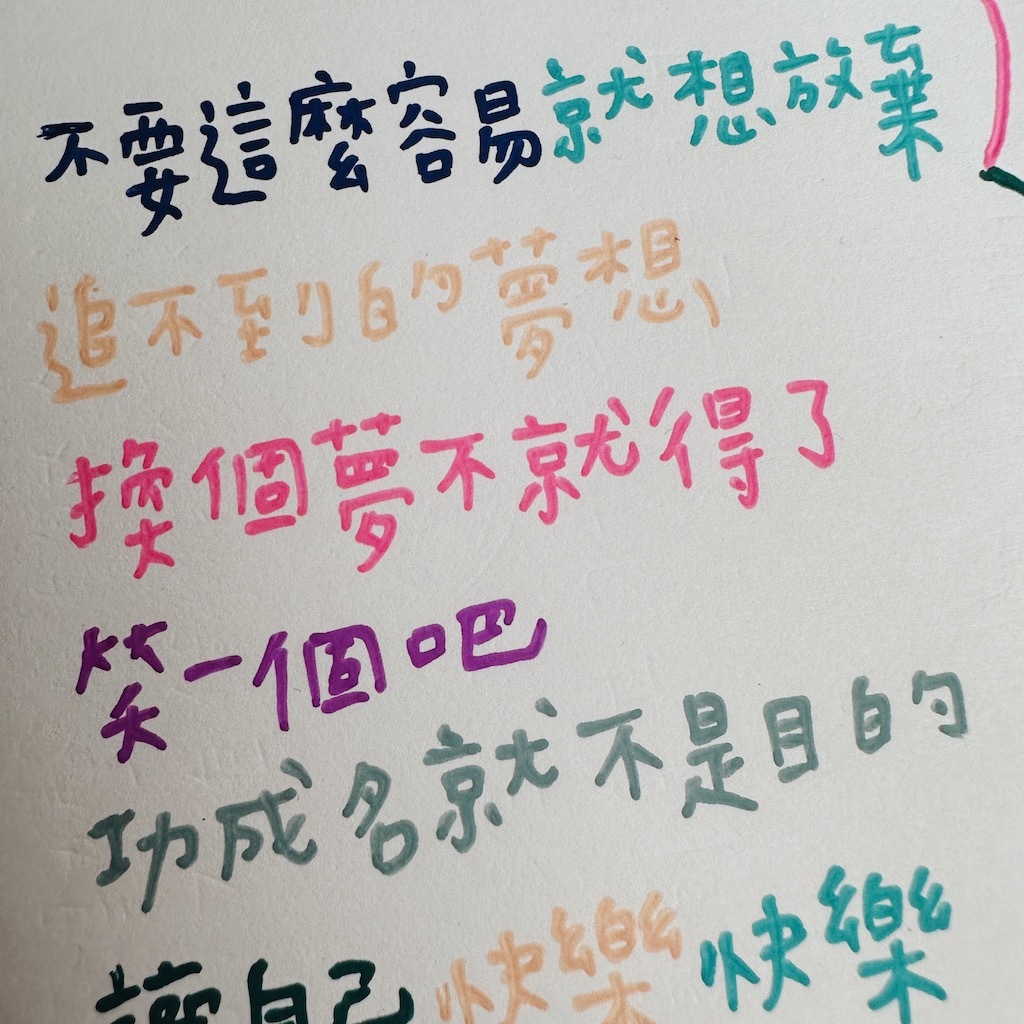 不要這麼容易就想放棄
追不到的夢想
換個夢不就得了
笑一個吧
功成名就不是目的
讓自己快樂快樂